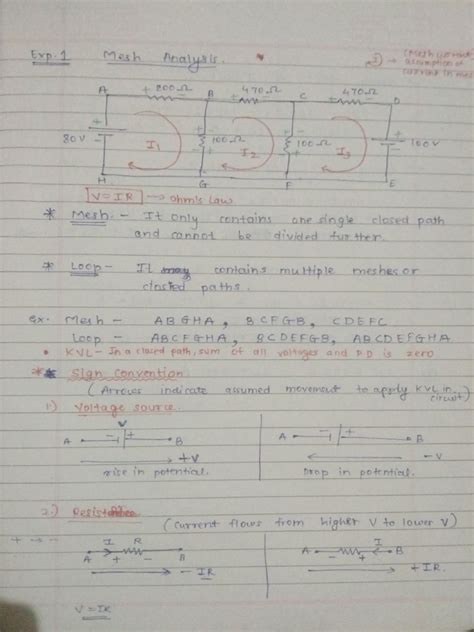 Exp. 1 Mesh Analysis.
(Mesh current)
I → assumption of
current in mesh
A + 800Ω - B + 470Ω - C + 470Ω - D
80V I1 100Ω I2 100Ω I3 100V
H G F E
V = IR → Ohm's Law
* Mesh :- It only contains one single closed path
and cannot be divided further.
* Loop - It may contains multiple meshes or
closted paths.
Ex. Mesh - ABGHA, BCFGB, CDEFC
Loop - ABCFGHA, BCDEFGB, ABCDEFGHA
• KVL - In a closed path, sum of all voltages and P.D is zero
* Sign Convention
(Arrows indicate assumed movement to apply KVL in circuit)
1.) Voltage source.
V
A - + B A - + B
+V -V
rise in potential. Drop in potential.
2.) Resistance (Current flows from higher V to lower V)
+ → -
I R I
A + - B A - + B
- IR + IR.
V = IR